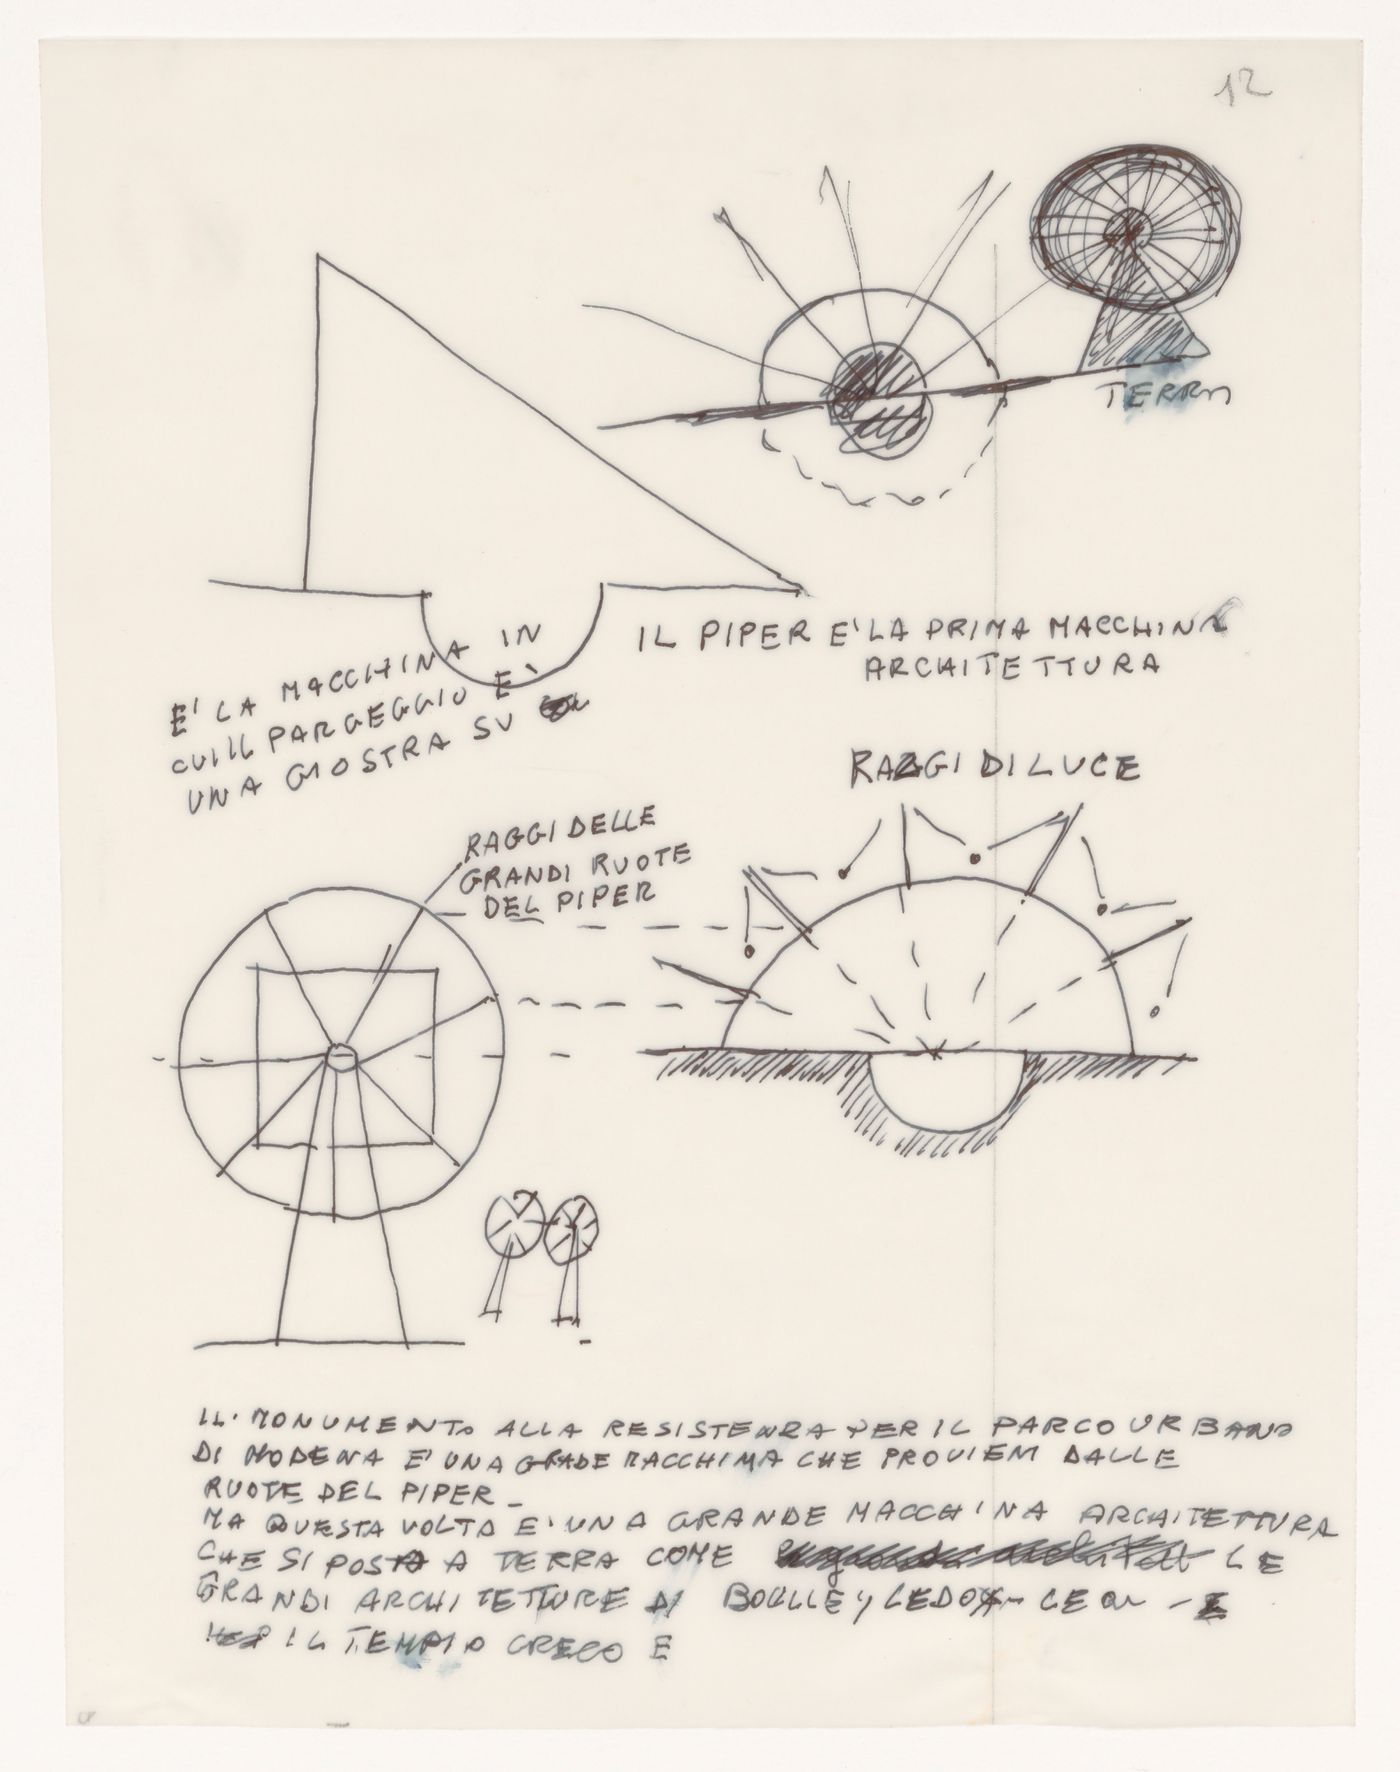 12
TERRA
IL PIPER E' LA PRIMA MACCHINA
ARCHITETTURA
E' LA MACCHINA IN
CUI IL PARGEGGIO E'
UNA GIOSTRA SU
RAGGI DI LUCE
RAGGI DELLE
GRANDI RUOTE
DEL PIPER
IL. MONUMENTO ALLA RESISTENZA PER IL PARCO URBANO
DI MODENA E' UNA GRADE MACCHIMA CHE PROVIEM DALLE
RUOTE DEL PIPER _
MA QUESTA VOLTA E' UNA GRANDE MACCHINA ARCHITETTURA
CHE SI POSTA A TERRA COME LE
GRANDI ARCHITETTURE DI BOULLEY LEDOX - LEQU - E
IL TEMPIO GRECO E